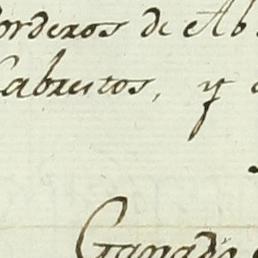 orderos de Ab
Cabritos, y
Ganado